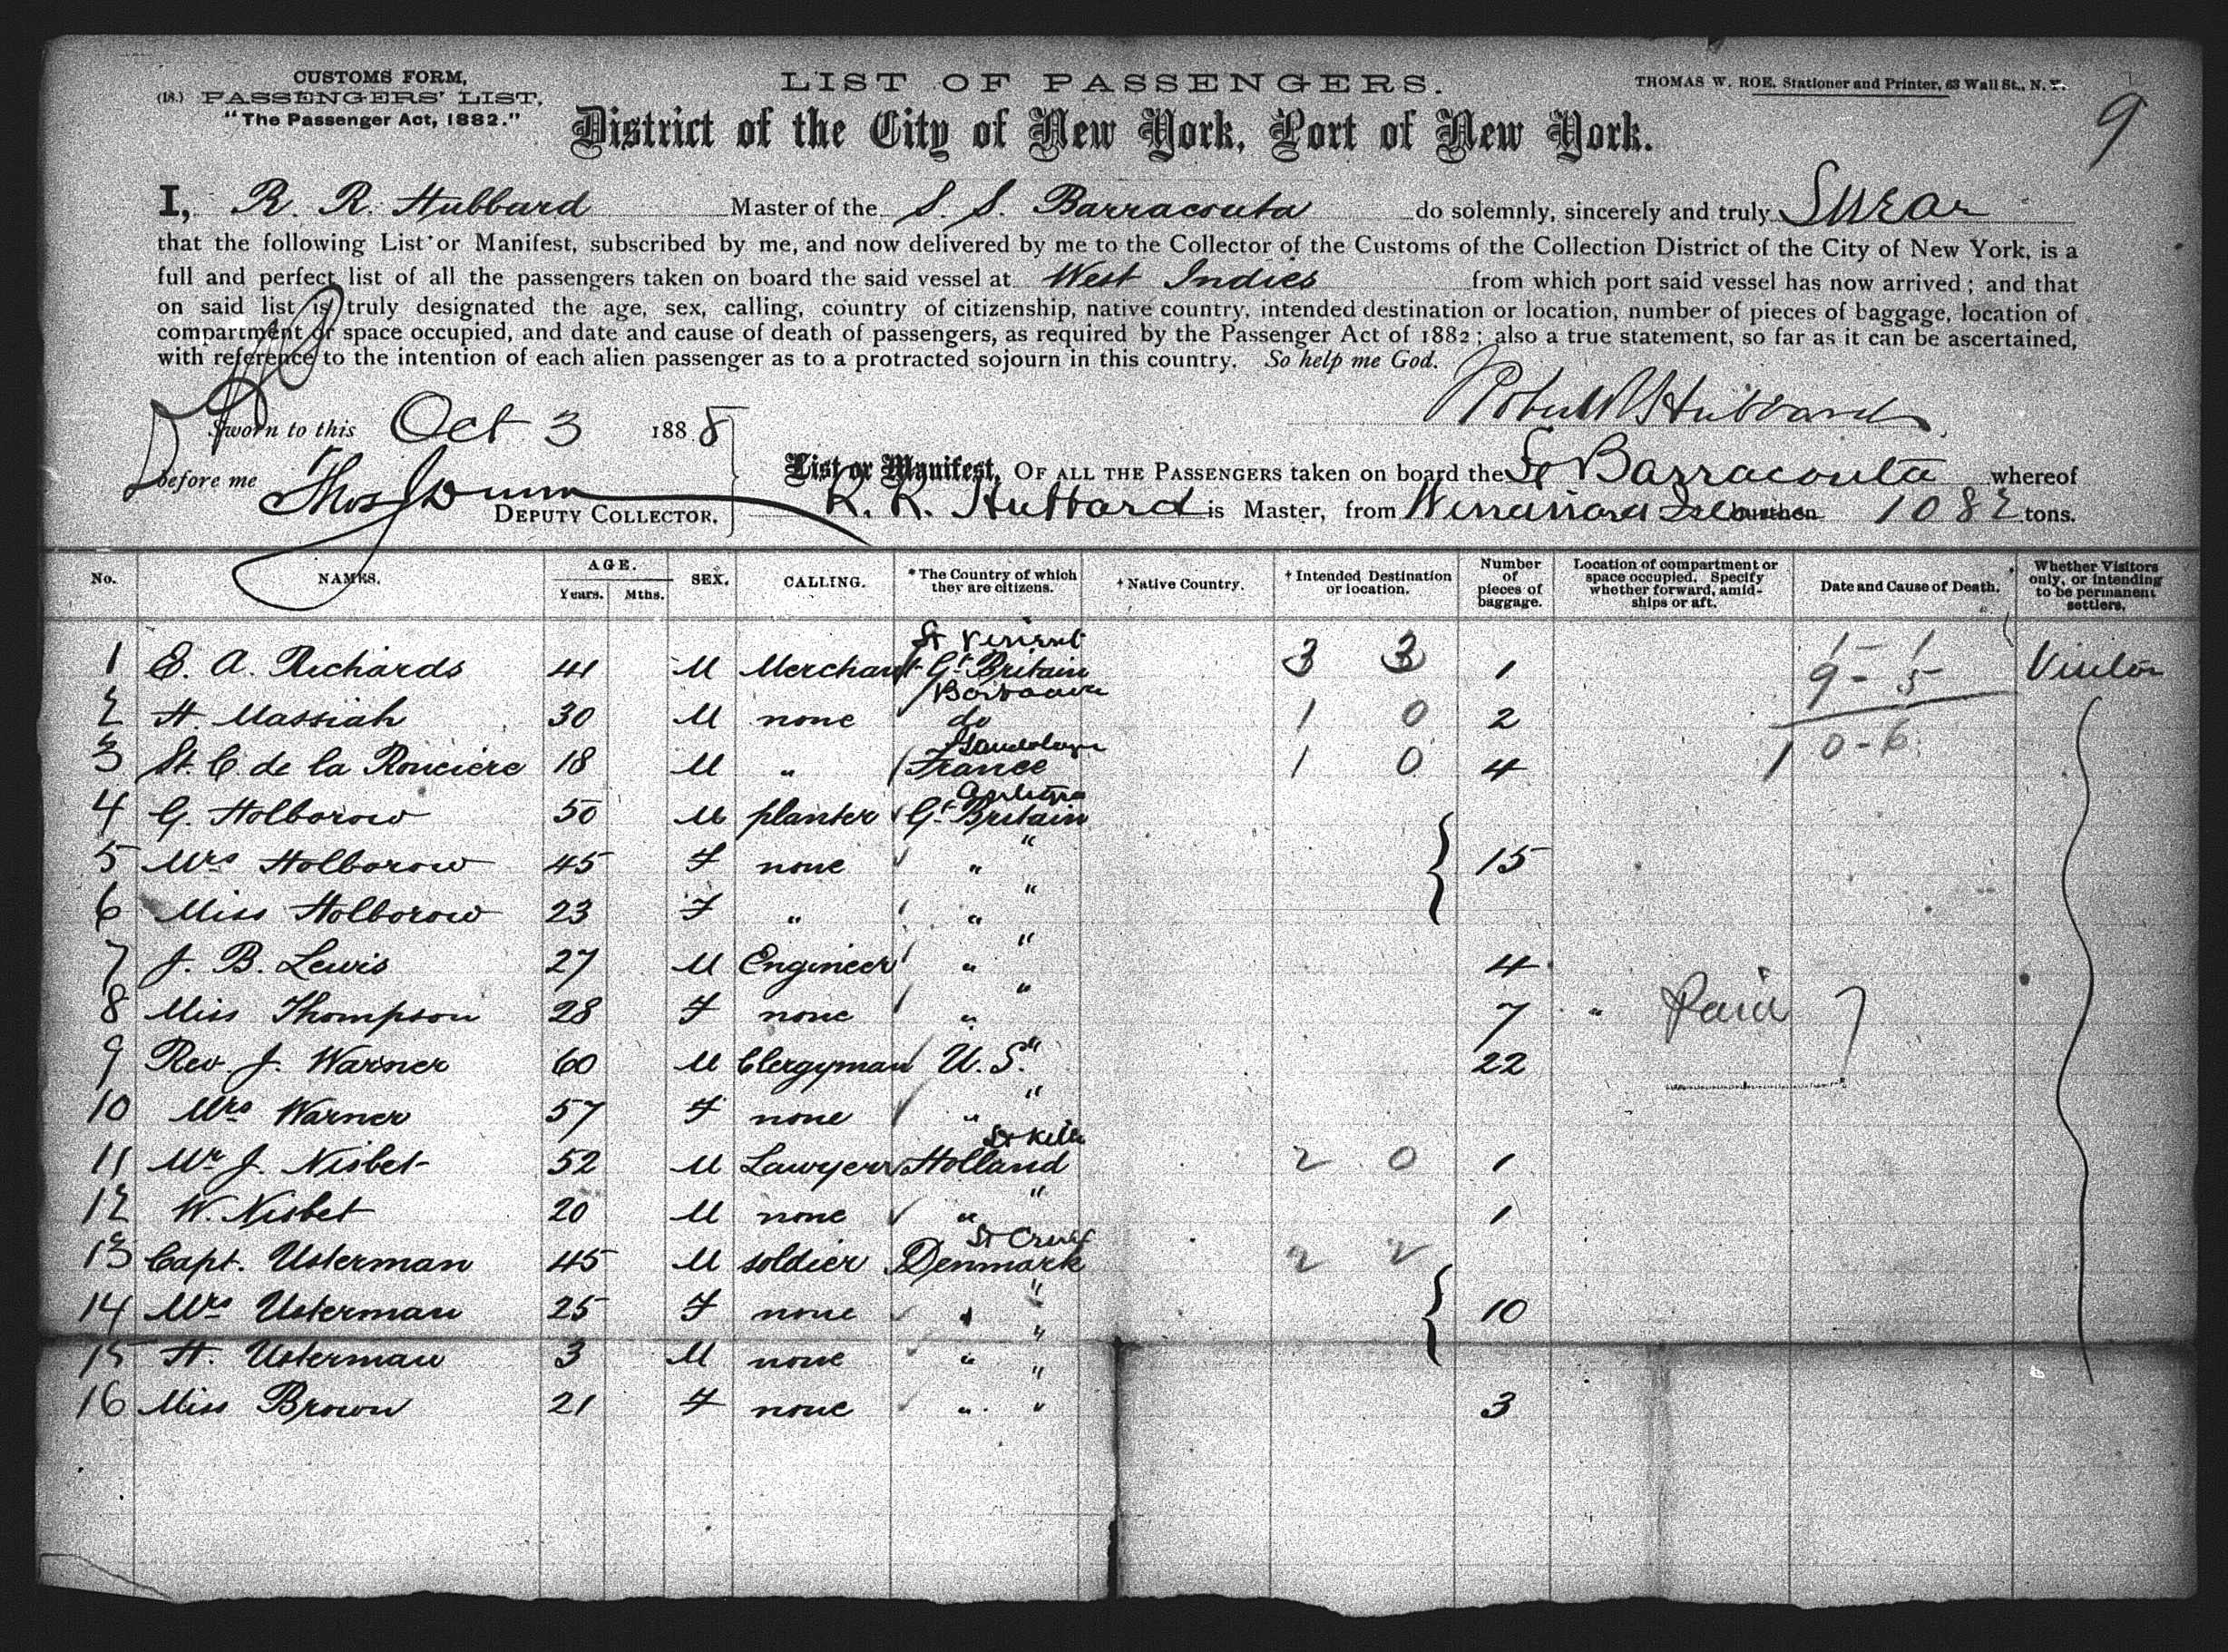 CUSTOMS FORM,
(18.) PASSENGERS' LIST,
"The Passenger Act, 1882."
LIST OF PASSENGERS.
THOMAS W. ROE, Stationer and Printer, 63 Wall St., N. Y.
9
District of the City of New York, Port of New York.
I, R. R. Hubbard Master of the S. S. Barracouta do solemnly, sincerely and truly Swear
that the following List or Manifest, subscribed by me, and now delivered by me to the Collector of the Customs of the Collection District of the City of New York, is a
full and perfect list of all the passengers taken on board the said vessel at West Indies from which port said vessel has now arrived; and that
on said list is truly designated the age, sex, calling, country of citizenship, native country, intended destination or location, number of pieces of baggage, location of
compartment or space occupied, and date and cause of death of passengers, as required by the Passenger Act of 1882; also a true statement, so far as it can be ascertained,
with reference to the intention of each alien passenger as to a protracted sojourn in this country. So help me God.
Robert R Hubbard
Sworn to this Oct 3 1888
before me Thos J Dunn
DEPUTY COLLECTOR.
List or Manifest, OF ALL THE PASSENGERS taken on board the SS Barracouta whereof
R. R. Hubbard is Master, from Windward burthen 1082 tons.
No. NAMES. AGE. Years. Mths. SEX. CALLING. *The Country of which they are citizens. † Native Country. † Intended Destination or location. Number of pieces of baggage. Location of compartment or space occupied. Specify whether forward, amidships or aft. Date and Cause of Death. Whether Visitors only, or intending to be permanent settlers.
St Vincent
1 E. A. Richards 41 M Merchant Gt Britain 3 3 1 1 - 1 Visitor
9 - 5
Barbados
2 H. Massiah 30 M none do 1 0 2
10 - 6
Guadeloupe
3 St. C. de la Ronciere 18 M " France 1 0 4
Antigua
4 G. Holborow 50 M planter Gt Britain
5 Mrs Holborow 45 F none " " 15
6 Miss Holborow 23 F " " "
7 J. B. Lewis 27 M Engineer " " 4
8 Miss Thompson 28 F none " " 7 " Paid 7
9 Rev. J. Warner 60 M Clergyman U. S. " 22
10 Mrs Warner 57 F none " "
St Kitts
11 Mr J. Nisbet 52 M Lawyer Holland 2 0 1
12 W. Nisbet 20 M none " " 1
St Croix
13 Capt. Usterman 45 M soldier Denmark 2 2
14 Mrs Usterman 25 F none " " 10
15 H. Usterman 3 M none " "
16 Miss Brown 21 F none " " 3